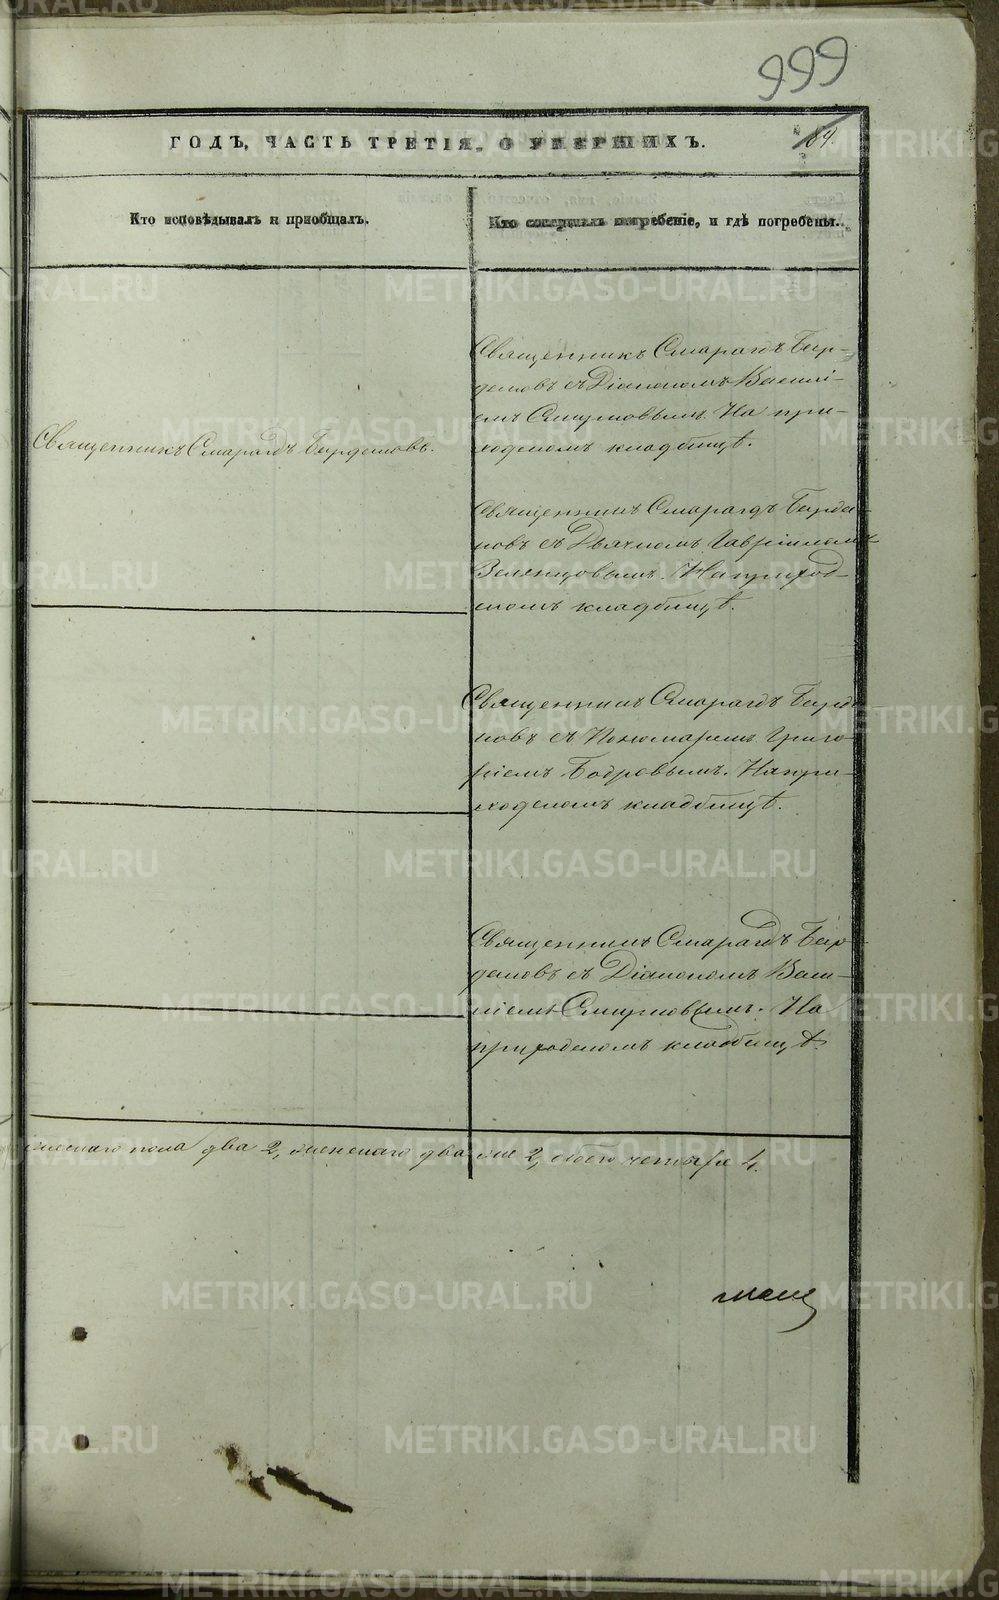 999
ГОДЪ, ЧАСТЬ ТРЕТІЯ, О УМЕРШИХЪ.
84.
Кто исповѣдывалъ и пріобщалъ.
Кто совершалъ погребеніе, и гдѣ погребены.
Священникъ Смарагдъ Бирдюковъ.
Священникъ Смарагдъ
съ Діакономъ Василі-
емъ Смирновымъ. На при-
ходскомъ кладбищѣ.
Священникъ Смарагдъ
съ Дьячкомъ Гавріиломъ
Зеленцовымъ. На приход-
скомъ кладбищѣ.
Священникъ Смарагдъ
съ Пономаремъ Григо-
ріемъ Бобровымъ. На при-
ходскомъ кладбищѣ.
Священникъ Смарагдъ
съ Діакономъ Васи-
ліемъ Смирновымъ. На
приходскомъ кладбищѣ.
мужескаго пола два 2, женскаго два 2, обоего четыре 4.
METRIKI.GASO-URAL.RU